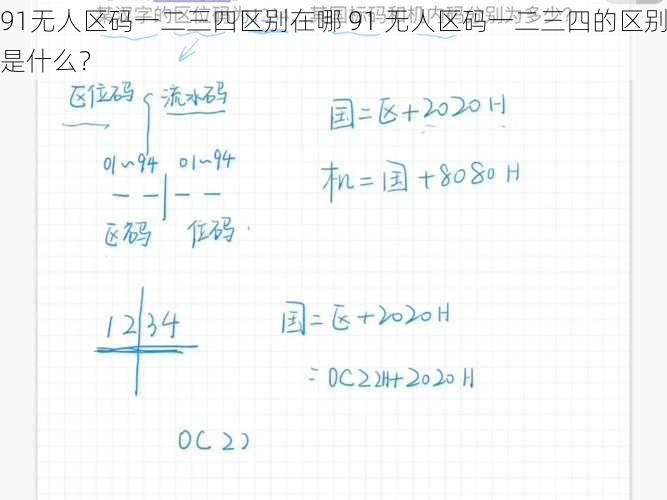 91无人区码一二三四区别在哪 91 无人区码一二三四的区别
是什么？
区位码 流水码
国=区+2020H
01~94 01~94
机=国+8080H
区码 位码
12 34
国=区+2020H
=0C22H+2020H
0C22